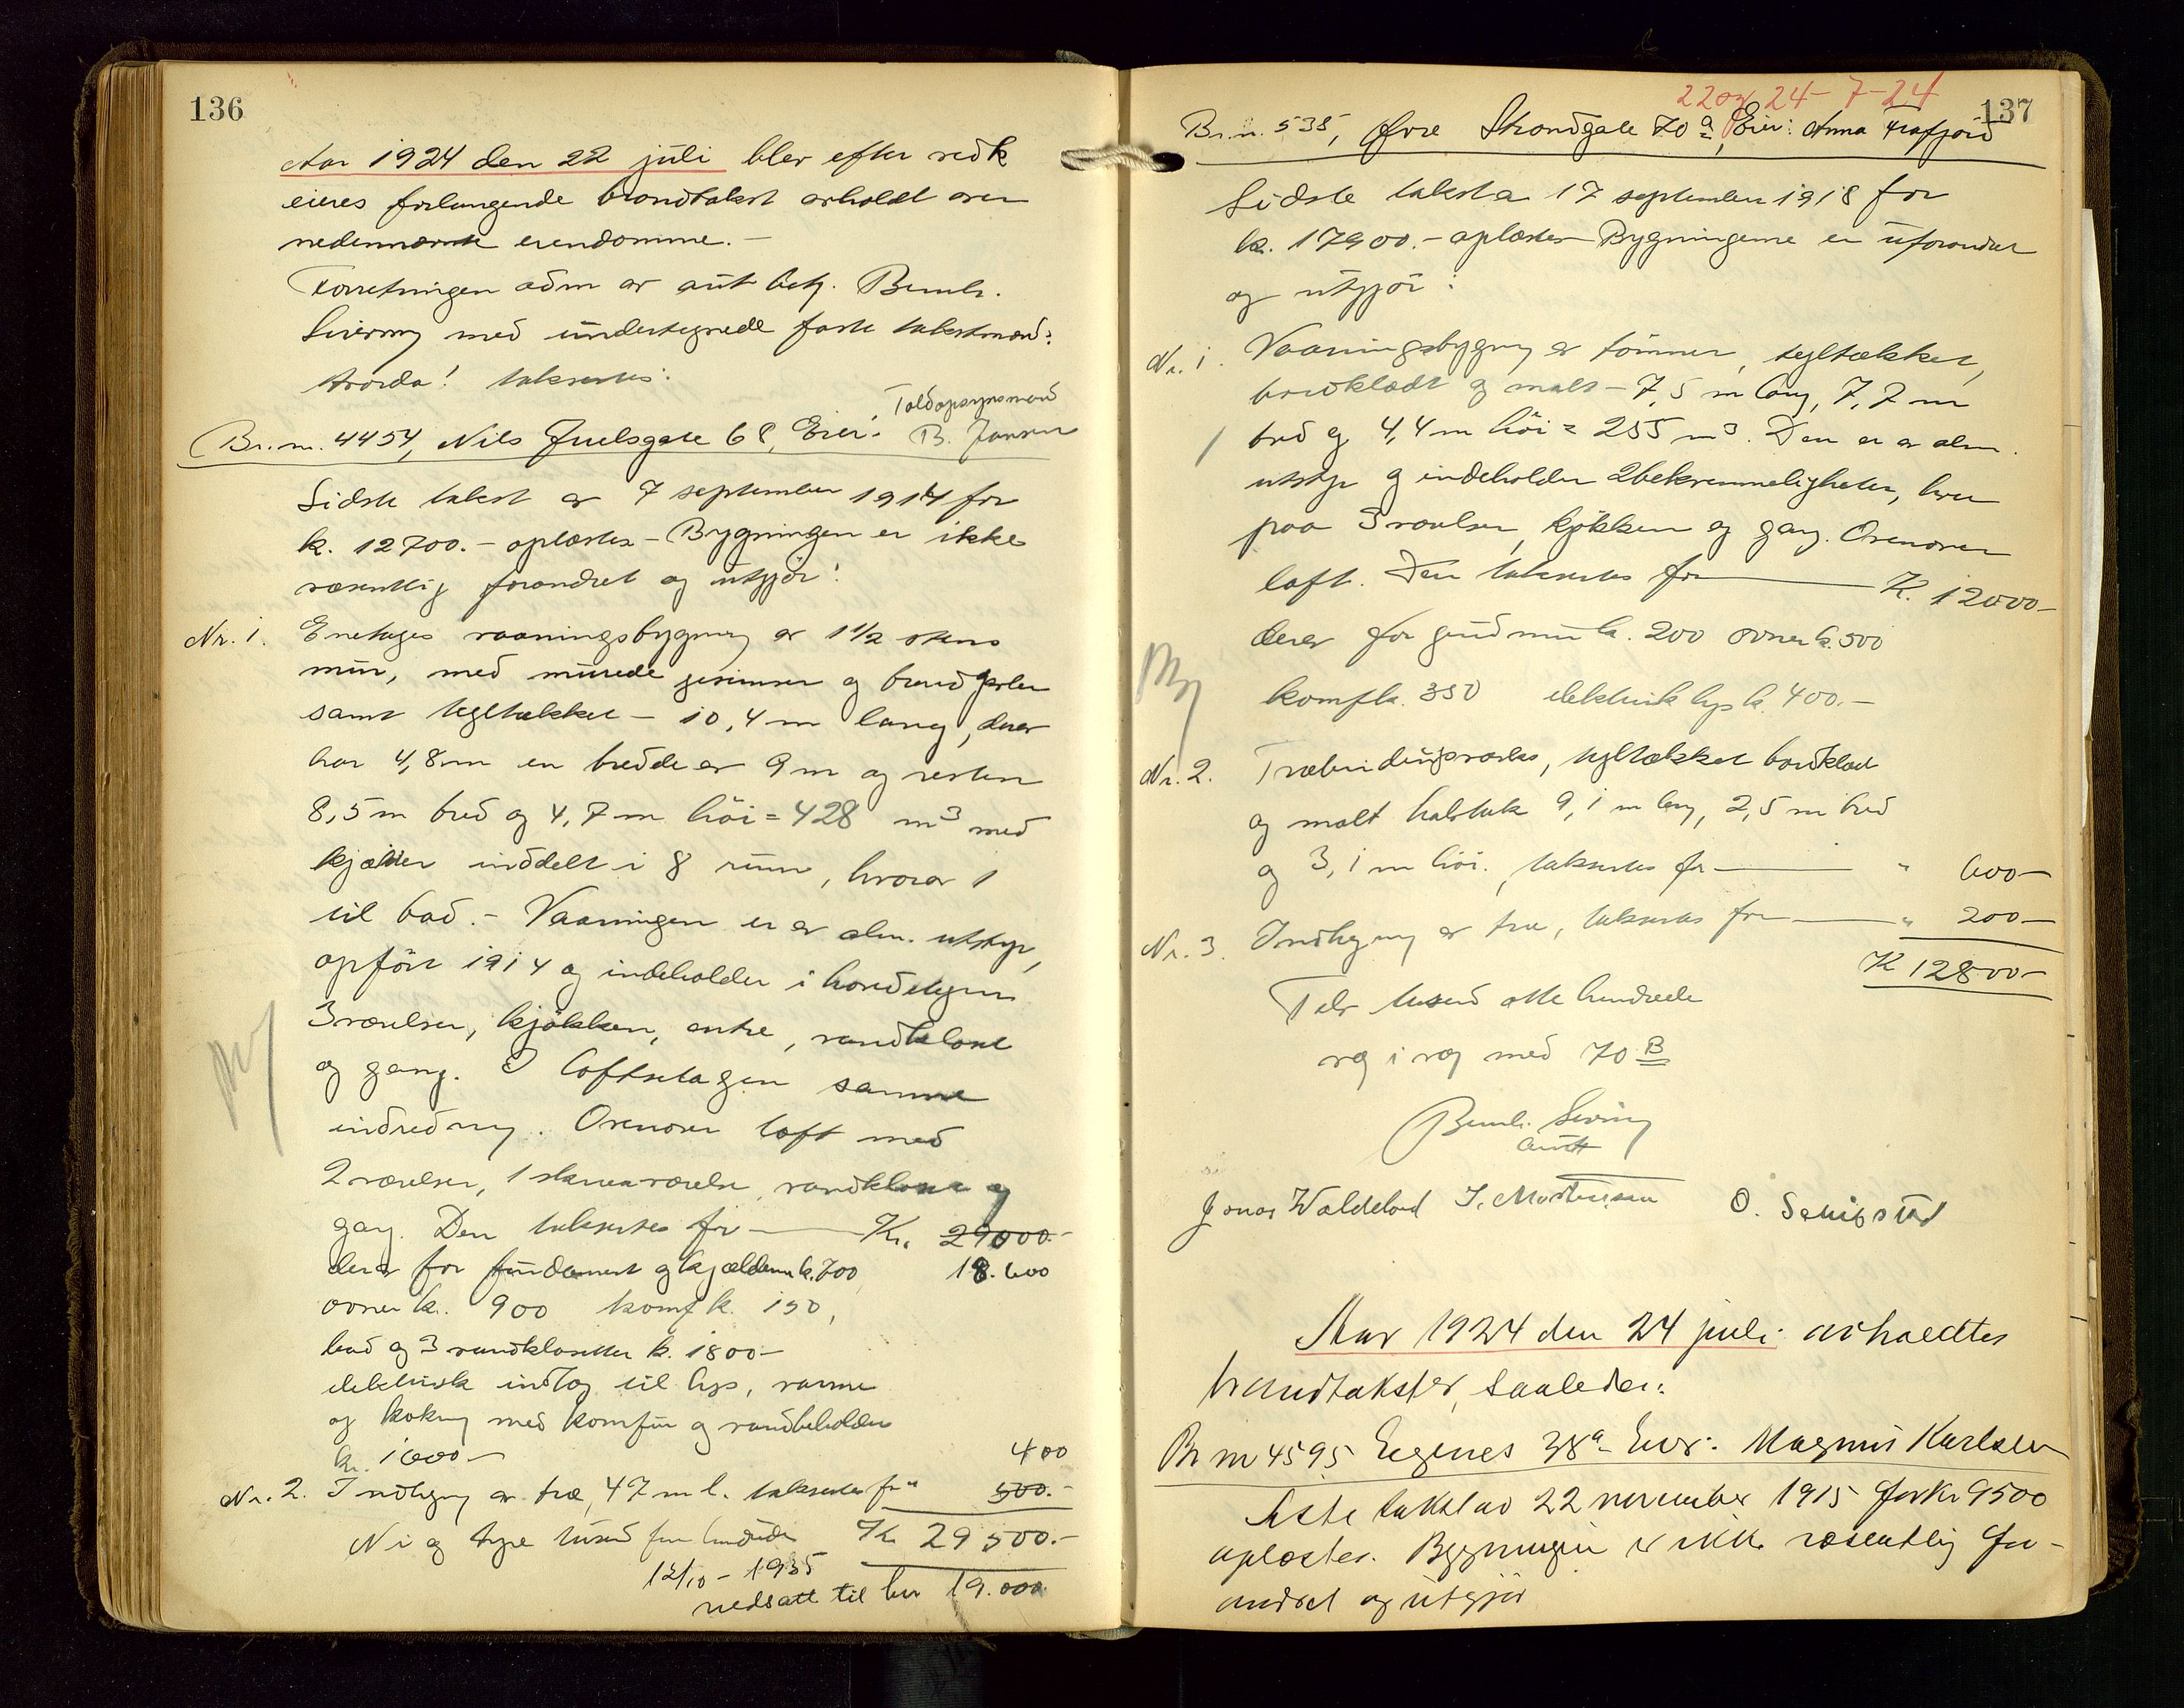 136
Aar 1924 den 22 juli blev efter vedk
eieres forlangende brandtakst avholdt over
nedennævnte eiendomme. –
Forretningen adm av aut bety. Brandt.
Sivering med undertegnede faste takstmænd:
Hvorda! takseredes:
Toldopsynsmand
Br. nr. 4454, Nils Juelsgate 68, Eier: B. Jansen
Sidste takst av 7 september 1914 for
k. 12700.– oplæstes – Bygningen er ikke
væsentlig forandret og utgjør:
Nr. 1. Enetages vaaningsbygning av 1 1/2 stens
mur, med murede gesimser og brandgavler
samt tegltækket – 10,4 m lang, derav
har 4,8 m en bredde av 9 m og resten
8,5 m bred og 4,7 m høi = 428 m³ med
kjælder inddelt i 8 rum, hvorav 1
til bad. – Vaaningen er av alm. utstyr,
opført 1914 og indeholder i hovedetagen
3 værelser, kjøkken, entre, vandklosset
og gang. I loftsetagen samme
indredning. Ovenover loft med
2 værelser, 1 skraaværelse, vandklosset og
gang. Den takseres for — Kr. 29000.–
derav for fundament og kjælderm k. 700 18.600
ovner k. 900 komf k. 150,
bad og 3 vandklosetter k. 1800–
elektrisk indlæg til lys, varme
og kokning med komfur og vandbeholder
kr. 1000 – 400
Nr. 2. Indhegning av træ, 47 m l. takseres for " 500.–
Ni og tyve tusend fem hundrede Kr 29500.–
12/10 – 1935
nedsatt til kr 19.000
22 og 24-7-24
137
Br. nr. 535, Øvre Strandgate 70 a, Eier: Anna Frafjord
Sidste takst av 17 september 1918 for
k. 17900.– oplæstes – Bygningerne er uforandret
og utgjør:
Nr. 1. Vaaningsbygning av tømmer, tegltækket,
bordklædt og malt – 7,5 m lang, 7,7 m
bred og 4,4 m høi = 255 m³. Den er av alm.
utstyr og indeholder 2 bekvemmeligheter, hver
paa 3 værelser, kjøkken og gang. Ovenover
loft. Den takseres for — K. 12000–
derav for grundmur k. 200 ovner k. 500
komf k. 350 elektrisk lys k. 400.–
Nr. 2. Træbindingsverks, tegltækket bordklædt
og malt halvtak 9,1 m lang, 2,5 m bred
og 3,1 m høi., takseres for — " 600–
Nr. 3. Indhegning av træ, takseres for — " 200–
K 12800–
Tolv tusend otte hundrede
væg i væg med 70 B
Brandt. Sivering
aut
Jonas Waldeland I. Mortensen O. Schibsted
Aar 1924 den 24 juli avholdtes
brandtakster, saaledes:
Br nr 4595 Egenes 38a Eier: Magnus Karlsen
Siste takst av 22 november 1915 for kr 9500
oplæstes. Bygningen er ikke væsentlig for-
andret og utgjør